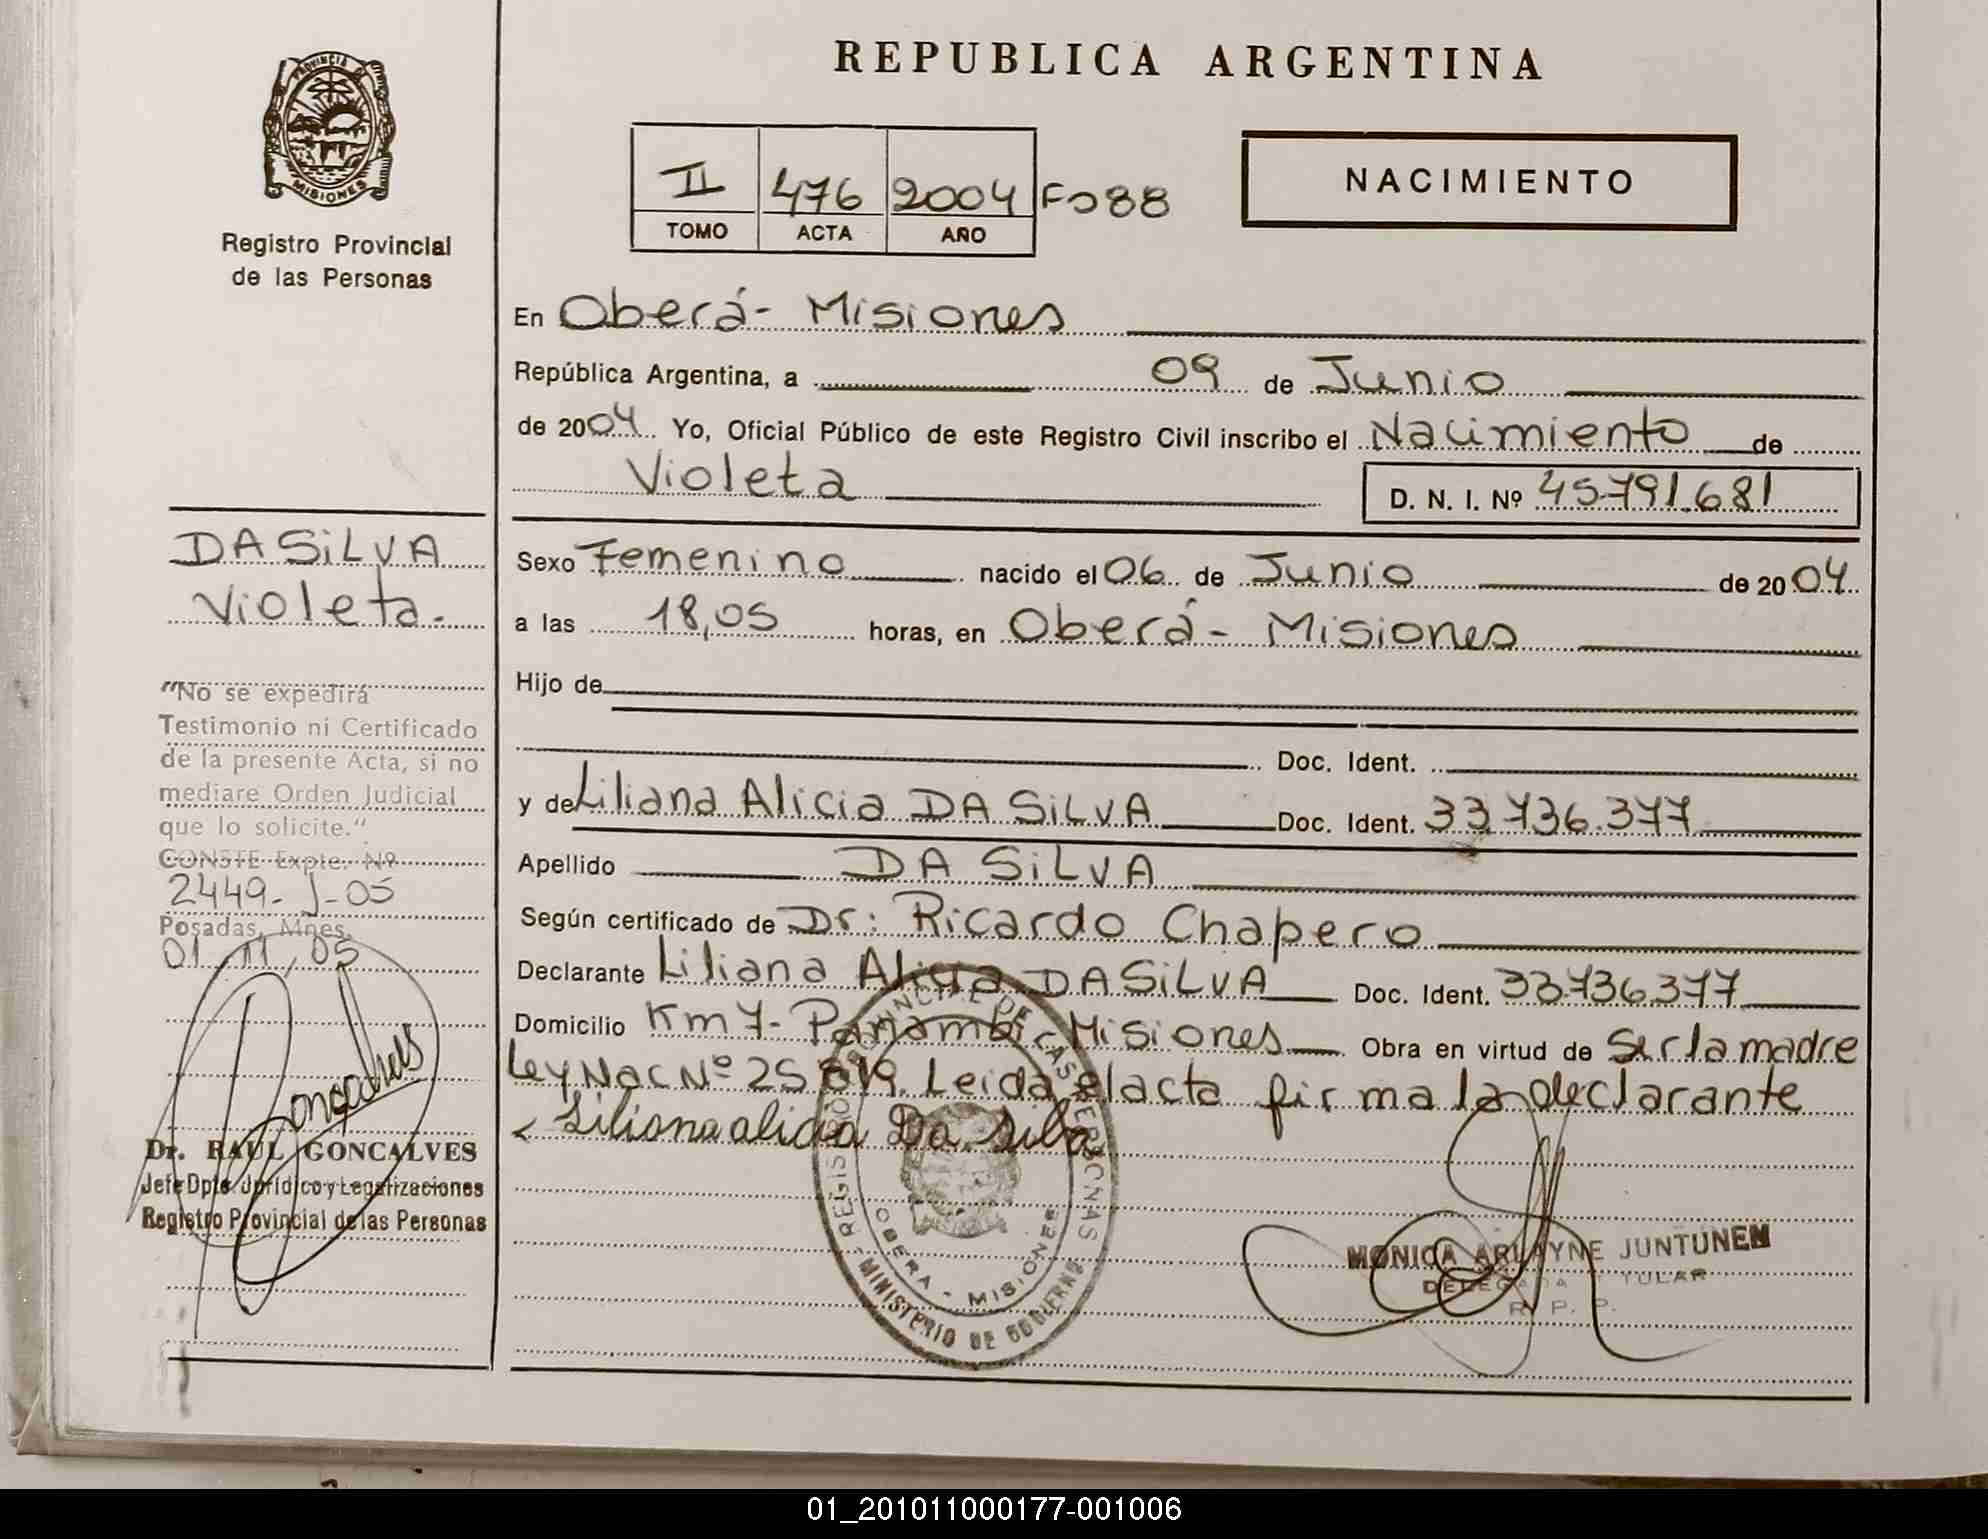 PROVINCIA DE
MISIONES
Registro Provincial
de las Personas
REPUBLICA ARGENTINA
II 476 2004 Fo 88
TOMO ACTA AÑO
NACIMIENTO
En Oberá - Misiones
República Argentina, a 09 de Junio
de 2004 Yo, Oficial Público de este Registro Civil inscribo el Nacimiento de
Violeta D. N. I. Nº 45.791.681
Sexo Femenino nacido el 06 de Junio de 2004
a las 18,05 horas, en Oberá - Misiones
Hijo de
Doc. Ident.
y de Liliana Alicia DA SILVA Doc. Ident. 33.736.377
Apellido DA SILVA
Según certificado de Dr: Ricardo Chapero
Declarante Liliana Alicia DA SILVA Doc. Ident. 33.736.377
Domicilio Km 7 - Panambi - Misiones Obra en virtud de Ser la madre
Ley Nac Nº 25.819. Leida el acta firma la declarante
Liliana alicia Da Silba
REGISTRO PROVINCIAL DE LAS PERSONAS
OBERA - MISIONES
MINISTERIO DE GOBIERNO
MONICA ARLAYNE JUNTUNEN
DELEGADA TITULAR
R. P. P.
DA SILVA
Violeta.
"No se expedirá
Testimonio ni Certificado
de la presente Acta, si no
mediare Orden Judicial
que lo solicite."
CONSTE Expte. Nº
2449-J-05
Posadas, Mnes.
01, 11, 05
Goncalves
Dr. RAUL GONCALVES
Jefe Dpto. Jurídico y Legalizaciones
Registro Provincial de las Personas
01_201011000177-001006